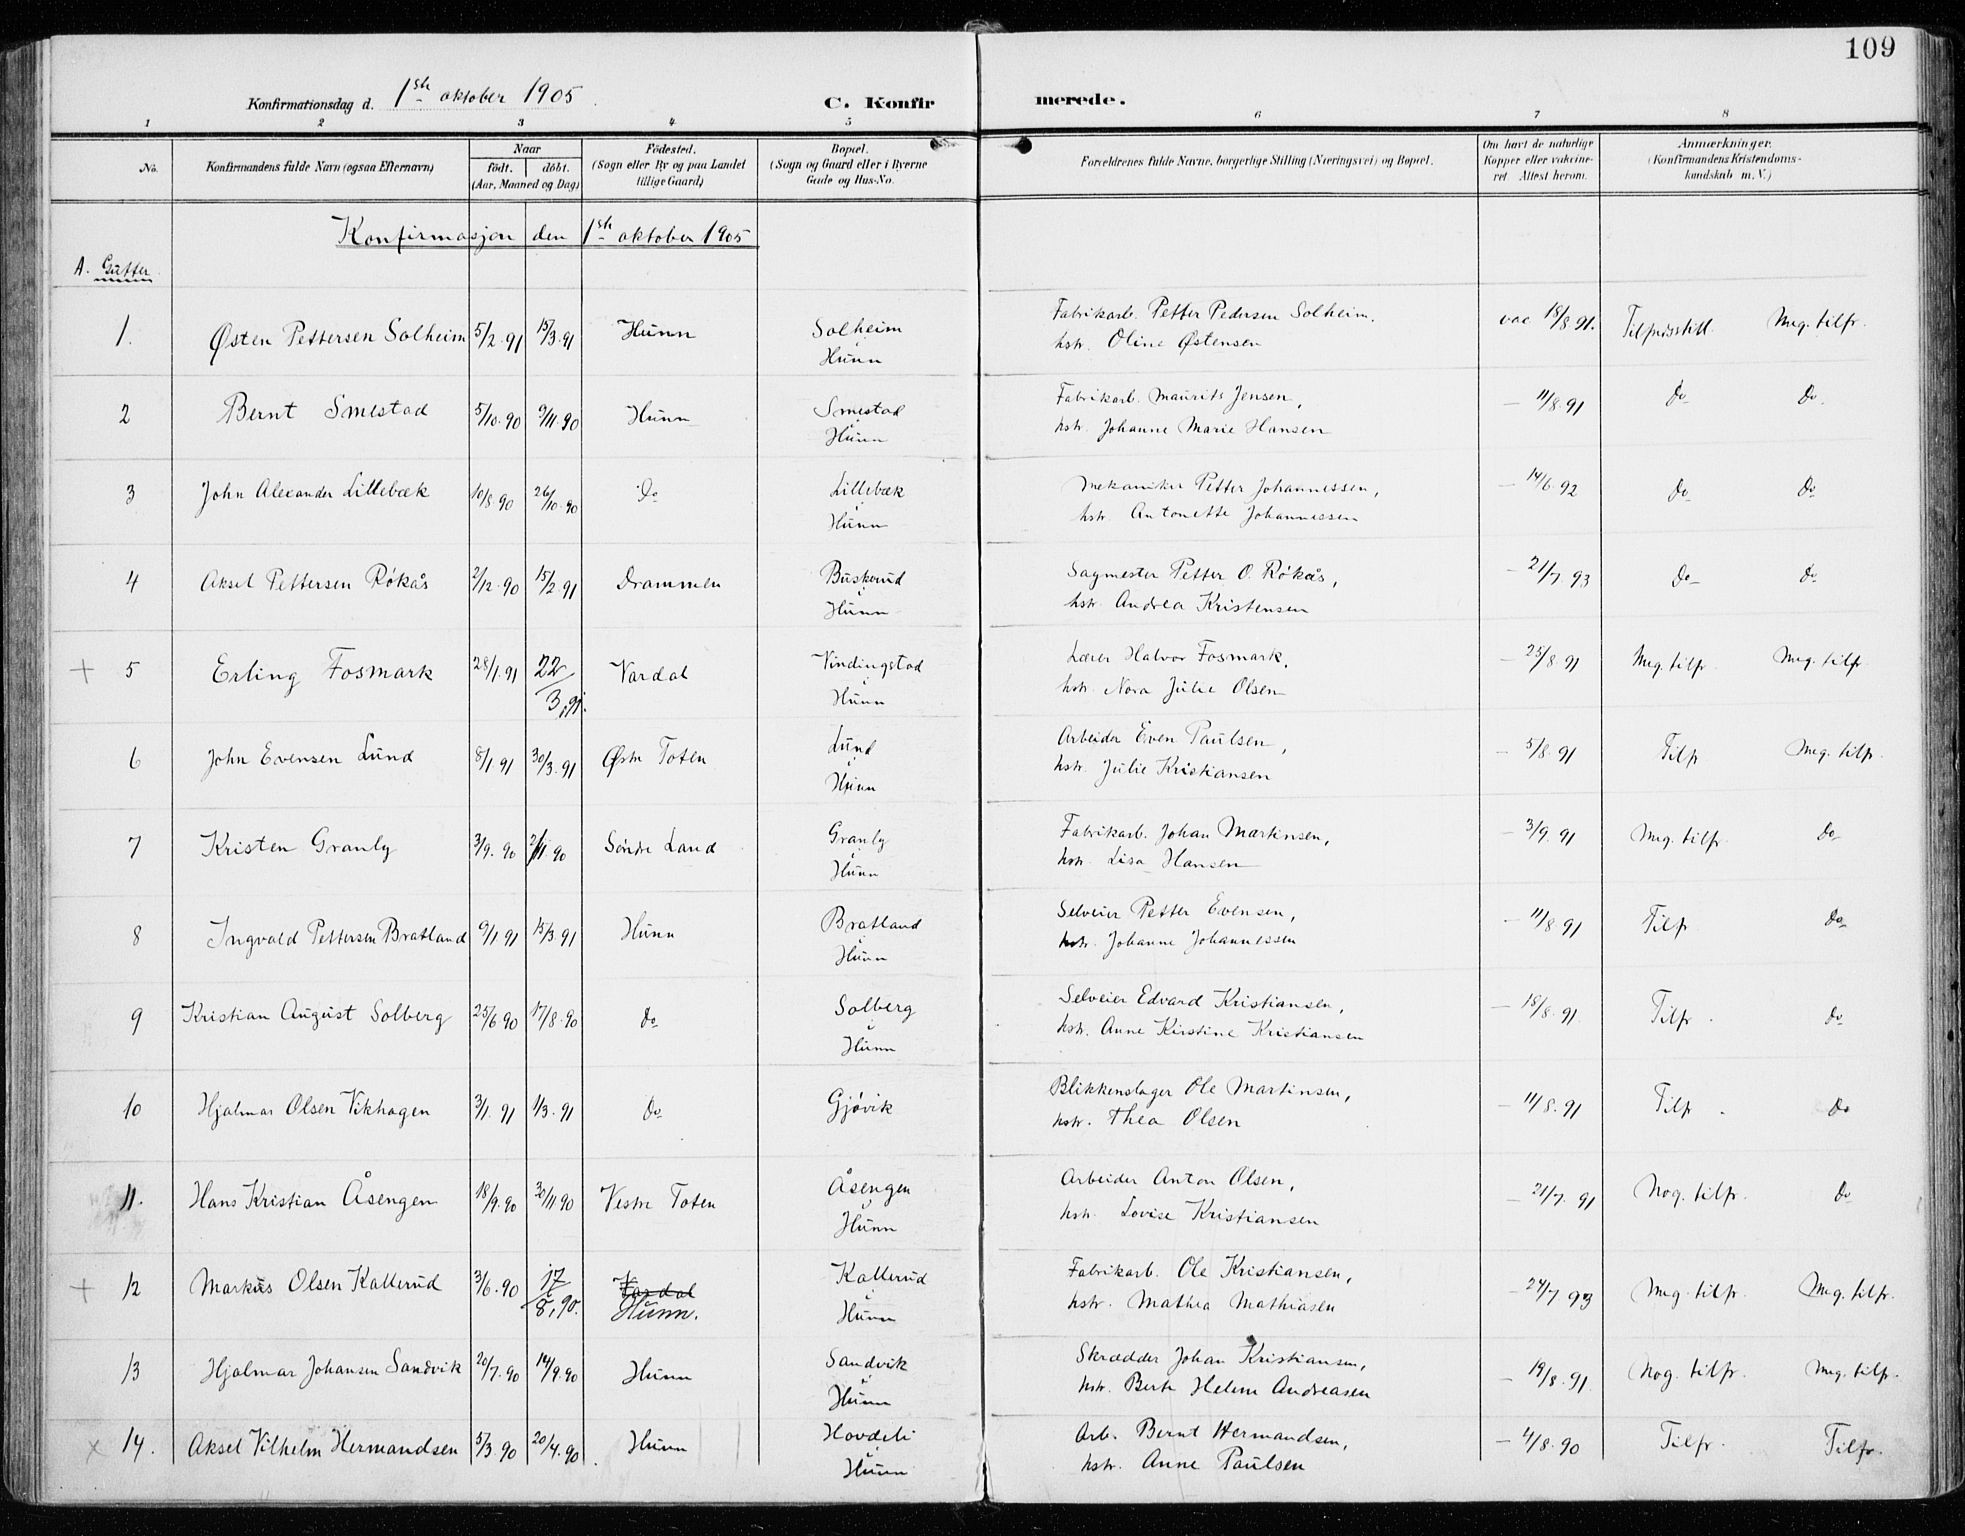 109
Konfirmationsdag d. 1ste oktober 1905
C. Konfirmerede.
1 2 3 4 5 6 7 8
No.
Konfirmandens fulde Navn (ogsaa Efternavn)
Naar
født. døbt.
(Aar, Maaned og Dag)
Fødested.
(Sogn eller By og paa Landet
tillige Gaard)
Bopæl.
(Sogn og Gaard eller i Byerne
Gade og Hus-No.
Forældrenes fulde Navne, borgerlige Stilling (Næringsvei) og Bopæl.
Om havt de naturlige
Kopper eller vakcine-
ret. Attest herom.
Anmærkninger.
(Konfirmandens Kristendoms-
kundskab m. V.)
Konfirmasjon den 1ste oktober 1905
A. Gutter
1. Østen Pettersen Solheim 5/2.91 15/3.91 Hunn Solheim i Hunn Fabrikarb. Petter Pedersen Solheim, vac 18/8 91. Tilfredsstill. Meg. tilfr.
hstr. Oline Østensen
2 Bernt Smestad 5/10.90 9/11.90 Hunn Smestad i Hunn Fabrikarb. Maurits Jensen, — 11/8.91 Do Do.
hstr. Johanne Marie Hansen
3 John Alexander Lillebæk 10/8 90 26/10.90 Do Lillebæk i Hunn Mekaniker Petter Johannessen, — 14/6.92 Do Do
hstr. Antonette Johannessen
4 Aksel Pettersen Røkås 2/12.90 15/2.91 Drammen Buskerud i Hunn Sagmester Petter O. Røkås, — 21/7.93 Do Do
hstr. Andrea Kristensen
+ 5 Erling Fosmark 28/1.91 22/3,91. Vardal Vindingstad i Hunn Lærer Halvor Fosmark, — 25/8 91 Meg. tilfr. Meg. tilfr.
hstr. Nora Julie Olsen
6 John Evensen Lund 8/1 91 30/3.91 Østre Toten Lund i Hunn Arbeider Even Paulsen, — 5/8.91 Tilfr Meg. tilfr.
hstr. Julie Kristiansen
7 Kristen Granly 3/9.90 2/11.90 Søndre Land Granly i Hunn Fabrikarb. Johan Martinsen, — 3/9.91 Meg. tilfr. Do
hstr. Lisa Hansen
8 Ingvald Pettersen Bratland 9/1 91 15/3.91 Hunn Bratland i Hunn Selveier Petter Evensen, — 11/8 91 Tilfr. Do
hstr. Johanne Johannessen
9 Kristian August Solberg 25/6 90 17/8.90 Do Solberg i Hunn Selveier Edvard Kristiansen, — 18/8.91. Tilfr. Do
hstr. Anne Kirstine Kristiansen
10 Hjalmar Olsen Vikhagen 3/1.91 1/3.91 Do Gjøvik Blikkenslager Ole Martinsen, — 11/8.91 Tilfr. Do
hstr. Thea Olsen
11. Hans Kristian Åsengen 18/9.90 30/11 90 Vestre Toten Åsengen i Hunn Arbeider Anton Olsen, — 21/7.91 Nog. tilfr. Do
hstr. Lovise Kristiansen
+ 12 Markus Olsen Kallerud 3/6.90 17/8,90. Vardal Hunn. Kallerud i Hunn Fabrikarb. Ole Kristiansen, — 24/7 93 Meg. tilfr. Meg. tilfr.
hstr. Mathea Mathiasen
13 Hjalmar Johansen Sandvik 20/7.90 14/9.90 Hunn Sandvik i Hunn Skrædder Johan Kristiansen, — 19/8.91. Nog. tilfr. Meg. tilfr.
hstr. Berte Helene Andreasen
x 14. Aksel Vilhelm Hermandsen 5/3.90 20/4.90 Hunn Hovdeli i Hunn Arb. Bernt Hermandsen, — 4/8.90 Tilfr. Tilfr.
hstr. Anne Paulsen